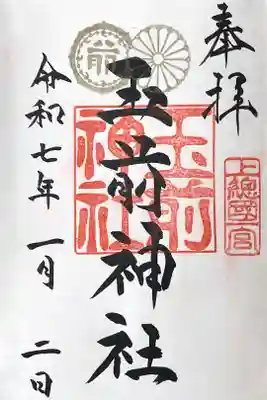 奉拝
上總國一宮
玉前神社
玉前神社
前
令和七年一月二日